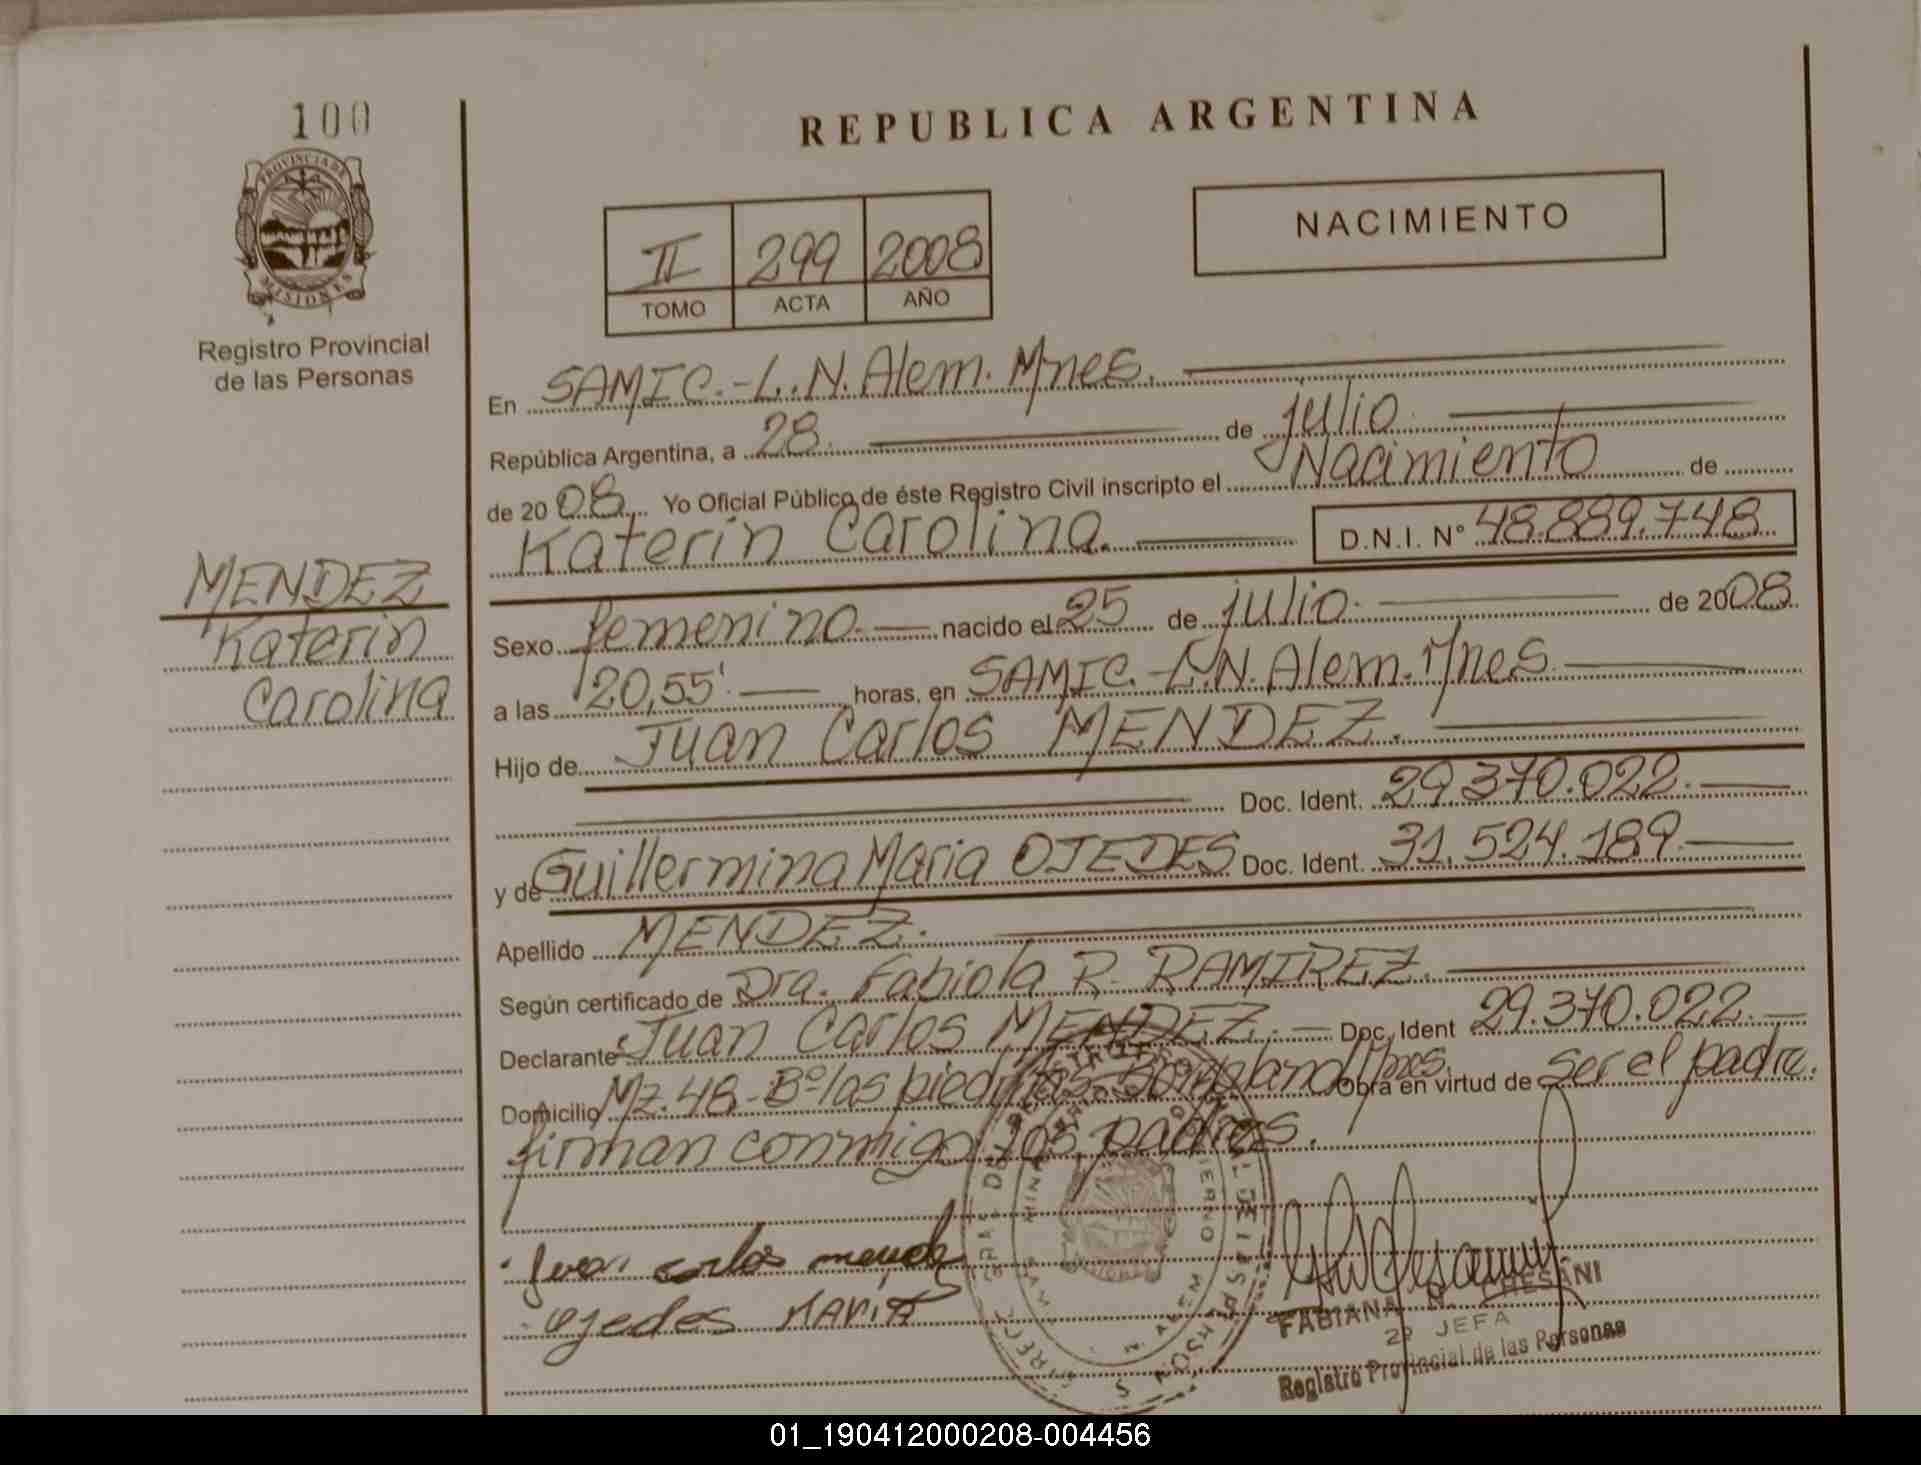 100
PROVINCIA DE
MISIONES
Registro Provincial
de las Personas
MENDEZ
Katerin
Carolina
REPUBLICA ARGENTINA
II 299 2008
TOMO ACTA AÑO
NACIMIENTO
En SAMIC.-L.N.Alem.Mnes.
República Argentina, a 28. de julio.
de 2008. Yo Oficial Público de éste Registro Civil inscripto el Nacimiento de
Katerin Carolina. D.N.I. Nº 48.889.748
Sexo femenino. nacido el 25 de julio. de 2008.
a las 20,55'. horas, en SAMIC.-L.N.Alem.Mnes.
Hijo de Juan Carlos MENDEZ.
Doc. Ident. 29.370.022.
y de Guillermina Maria OJEDES Doc. Ident. 31.524.189.
Apellido MENDEZ.
Según certificado de Dra. Fabiola R. RAMIREZ.
Declarante Juan Carlos MENDEZ. Doc. Ident 29.370.022.
Domicilio Mz.48-Bº las piedritas-Bompland Mnes. Obra en virtud de ser el padre.
firman conmigo los padres.
Juan carlos mendez
ojedes MARIA
FABIANA N. 
2º JEFA
Registro Provincial de las Personas
01_190412000208-004456